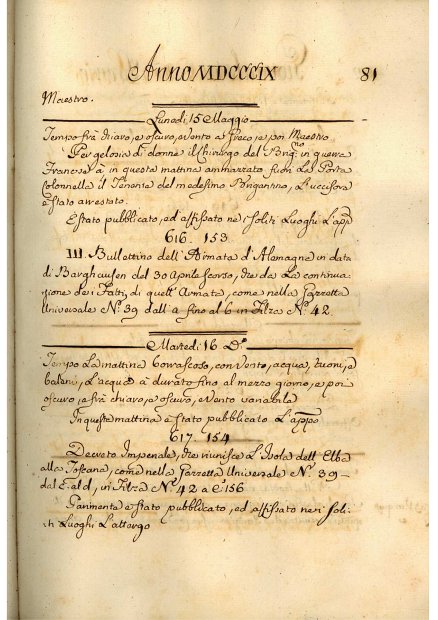 Anno MDCCCIX 81
Maestro.
Lunedì 15 Maggio
Tempo frà chiaro, e oscuro, e vento a Greco, e poi Maestro
Per gelosia di donne il Chirurgo del Brig.no in guerra
Francese à in questa mattina ammazzato fuori La Porta
Colonnella il Tenente del medesimo Brigantino, L'uccisore
e Stato arrestato.
E stato pubblicato, ed affissato ne soliti Luoghi L'app
616. 153
III. Bullettino dell'Armata d'Alemagne in data
di Barghausen del 30 Aprile scorso, che da La continua-
zione dei Fatti di quell'Armata, come nella Gazzetta
Universale N.° 39 dall' a fino al 6 in Filza N.° 42.
Martedì 16 D.°
Tempo La mattina borrascoso, con vento, acqua, tuoni, e
baleni, L'acqua à durato fino al mezzo giorno, e poi
oscuro, e frà chiaro, e oscuro, e vento variabile
In queste mattina e stato pubblicato L'appo
617. 154
Decreto Imperiale, che riunisce L'Isola dell'Elba
alla Toscana, come nella Gazzetta Universale N.° 39
dal in Filza N.° 42 a C. 156
Parimente e stato pubblicato, ed affissato nei soli-
ti Luoghi L'attergo